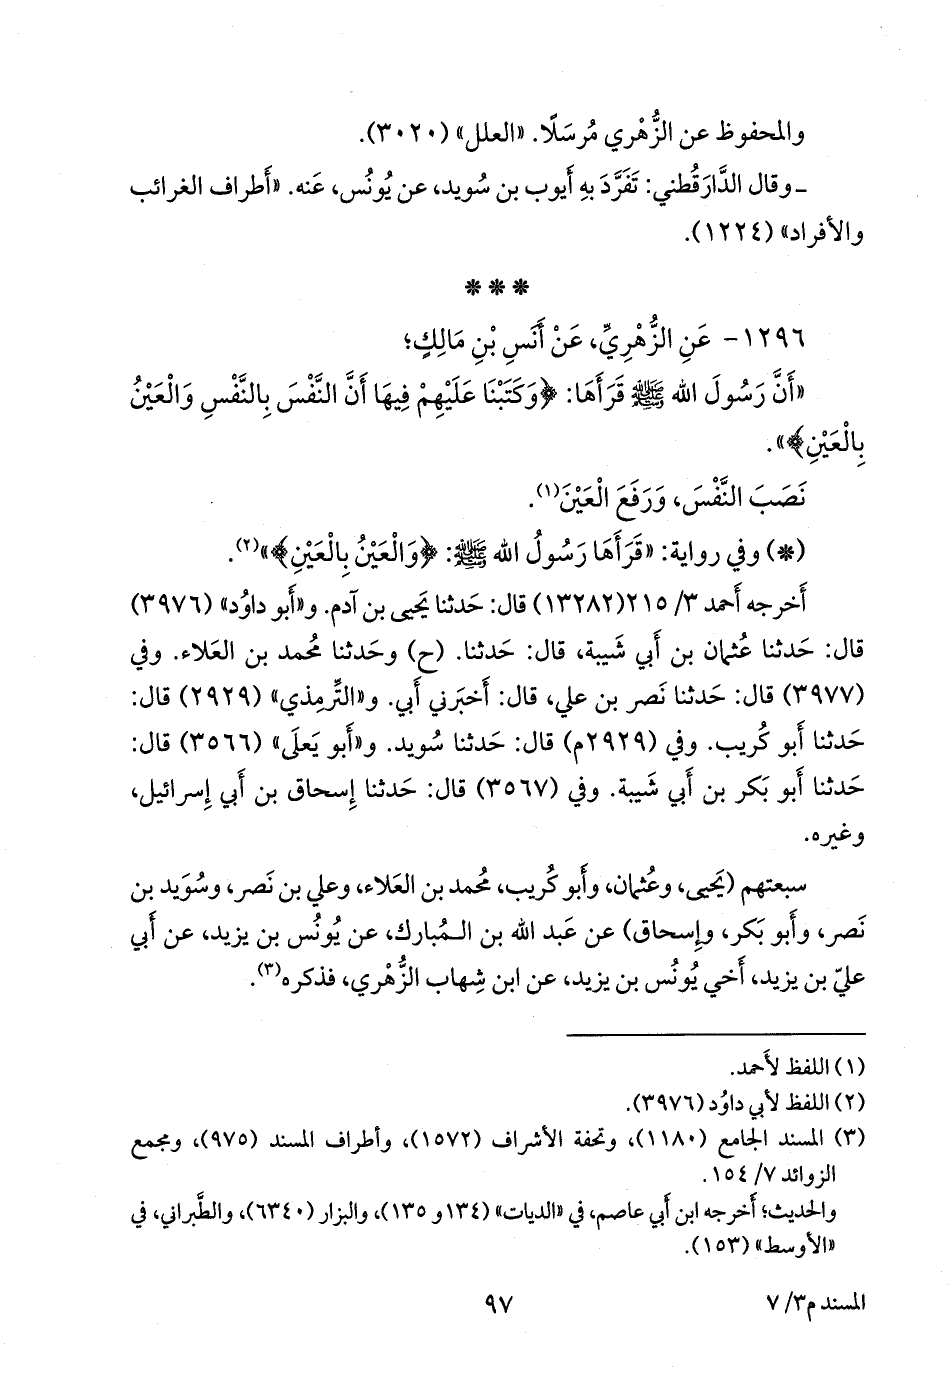 والمحفوظ عن الزُّهْري مُرسَلًا. «العلل» (٣٠٢٠).
ـ وقال الدَّارَقُطني: تَفَرَّدَ بِهِ أَيوب بن سُويد، عن يُونُس، عَنه. «أَطراف الغرائب
والأفراد» (١٢٢٤).
* * *
١٢٩٦- عَنِ الزُّهْرِيِّ، عَنْ أَنَسِ بْنِ مَالِكٍ؛
«أَنَّ رَسُولَ الله ﷺ قَرَأَهَا: ﴿وَكَتَبْنَا عَلَيْهِمْ فِيهَا أَنَّ النَّفْسَ بِالنَّفْسِ وَالْعَيْنُ
بِالْعَيْنِ﴾».
نَصَبَ النَّفْسَ، وَرَفَعَ الْعَيْنَ(١).
(*) وفي رواية: «قَرَأَهَا رَسُولُ الله ﷺ: ﴿وَالْعَيْنُ بِالْعَيْنِ﴾»(٢).
أَخرجه أَحمد ٣/ ٢١٥(١٣٢٨٢) قال: حَدثنا يَحيى بن آدم. و«أَبو داوُد» (٣٩٧٦)
قال: حَدثنا عُثمان بن أَبي شَيبة، قال: حَدثنا. (ح) وحَدثنا مُحمد بن العَلاء. وفي
(٣٩٧٧) قال: حَدثنا نَصر بن علي، قال: أَخبَرني أَبي. و«التِّرمِذي» (٢٩٢٩) قال:
حَدثنا أَبو كُريب. وفي (٢٩٢٩م) قال: حَدثنا سُويد. و«أَبو يَعلَى» (٣٥٦٦) قال:
حَدثنا أَبو بَكر بن أَبي شَيبة. وفي (٣٥٦٧) قال: حَدثنا إِسحاق بن أَبي إِسرائيل،
وغيره.
سبعتهم (يَحيى، وعُثمان، وأَبو كُريب، مُحمد بن العَلاء، وعلي بن نَصر، وسُوَيد بن
نَصر، وأَبو بَكر، وإِسحاق) عن عَبد الله بن الـمُبارك، عن يُونُس بن يزيد، عن أَبي
عليّ بن يزيد، أَخي يُونُس بن يزيد، عن ابن شِهاب الزُّهْري، فذكره(٣).
(١) اللفظ لأَحمد.
(٢) اللفظ لأبي داوُد (٣٩٧٦).
(٣) المسند الجامع (١١٨٠)، وتحفة الأشراف (١٥٧٢)، وأطراف المسند (٩٧٥)، ومجمع
الزوائد ٧/ ١٥٤.
والحديث؛ أَخرجه ابن أَبي عاصم، في «الديات» (١٣٤ و١٣٥)، والبزار (٦٣٤٠)، والطَّبراني، في
«الأوسط» (١٥٣).
المسند م٣/ ٧
٩٧